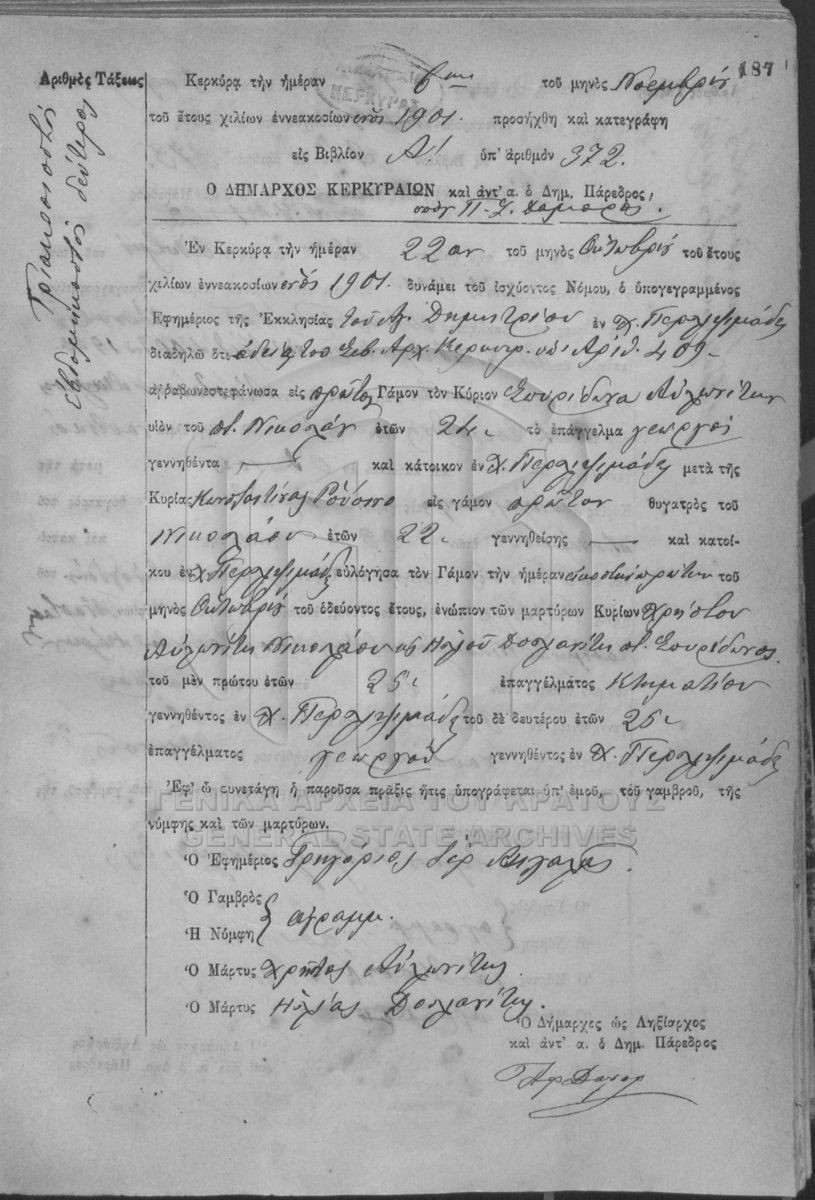 187
Ἀριθμὸς Τάξεως
Τριακοσιοστὸς
ἑβδομηκοστὸς δεύτερος
Κερκύρᾳ τὴν ἡμέραν 6ην τοῦ μηνὸς Νοεμβρίου
τοῦ ἔτους χιλίων ἐννεακοσίων ἑνὸς 1901. προσήχθη καὶ κατεγράφη
εἰς Βιβλίον Α! ὑπ' ἀριθμὸν 372.
Ο ΔΗΜΑΡΧΟΣ ΚΕΡΚΥΡΑΙΩΝ καὶ ἀντ' α. ὁ Δημ. Πάρεδρος,
Π. Ζ.
Ἐν Κερκύρᾳ τὴν ἡμέραν 22αν τοῦ μηνὸς Ὀκτωβρίου τοῦ ἔτους
χιλίων ἐννεακοσίων ἑνὸς 1901. δυνάμει τοῦ ἰσχύοντος Νόμου, ὁ ὑπογεγραμμένος
Ἐφημέριος τῆς Ἐκκλησίας τοῦ Ἁγ. Δημητρίου ἐν Χ. Περλεψιμάδες
διαδηλῶ ὅτι ἀδείᾳ τοῦ Σεβ. Ἀρχ. Κερκύρ. ὑπ' Ἀριθ. 409
ἀῤῥαβωνεστεφάνωσα εἰς πρῶτον Γάμον τὸν Κύριον Σπυρίδωνα Αὐλωνίτην
υἱὸν τοῦ π. Νικολάου ἐτῶν 24 τὸ ἐπάγγελμα γεωργὸς
γεννηθέντα — καὶ κάτοικον ἐν Χ. Περλεψιμάδες μετὰ τῆς
Κυρίας Κωνσταντίνας Ροῦσσο εἰς γάμον πρῶτον θυγατρὸς τοῦ
Νικολάου ἐτῶν 22 γεννηθείσης — καὶ κατοί-
κου ἐν Χ. Περλεψιμάδες εὐλόγησα τὸν Γάμον τὴν ἡμέραν εἰκοστὴν πρώτην τοῦ
μηνὸς Ὀκτωβρίου τοῦ ὁδεύοντος ἔτους, ἐνώπιον τῶν μαρτύρων Κυρίων Χρήστου
Αὐλωνίτη Νικολάου καὶ Ηλιοῦ Δουλανίτη π. Σπυρίδωνος.
τοῦ μὲν πρώτου ἐτῶν 25 ἐπαγγέλματος Κτηματίου
γεννηθέντος ἐν Χ. Περλεψιμάδες τοῦ δὲ δευτέρου ἐτῶν 25
ἐπαγγέλματος γεωργοῦ γεννηθέντος ἐν Χ. Περλεψιμάδες
Ἐφ' ᾧ συνετάγη ἡ παροῦσα πρᾶξις ἥτις ὑπογράφεται ὑπ' ἐμοῦ, τοῦ γαμβροῦ, τῆς
ΓΕΝΙΚΑ ΑΡΧΕΙΑ ΤΟΥ ΚΡΑΤΟΥΣ
νύμφης καὶ τῶν μαρτύρων.
GENERAL STATE ARCHIVES
Ὁ Ἐφημέριος Γρηγόριος Ἱερ
Ὁ Γαμβρὸς
Ἡ Νύμφη } ἀγραμμ.
Ὁ Μάρτυς Χρῆστος Αὐλωνίτης
Ὁ Μάρτυς Ηλίας Δουλανίτης.
Ὁ Δήμαρχος ὡς Ληξίαρχος
καὶ ἀντ' α. ὁ Δημ. Πάρεδρος